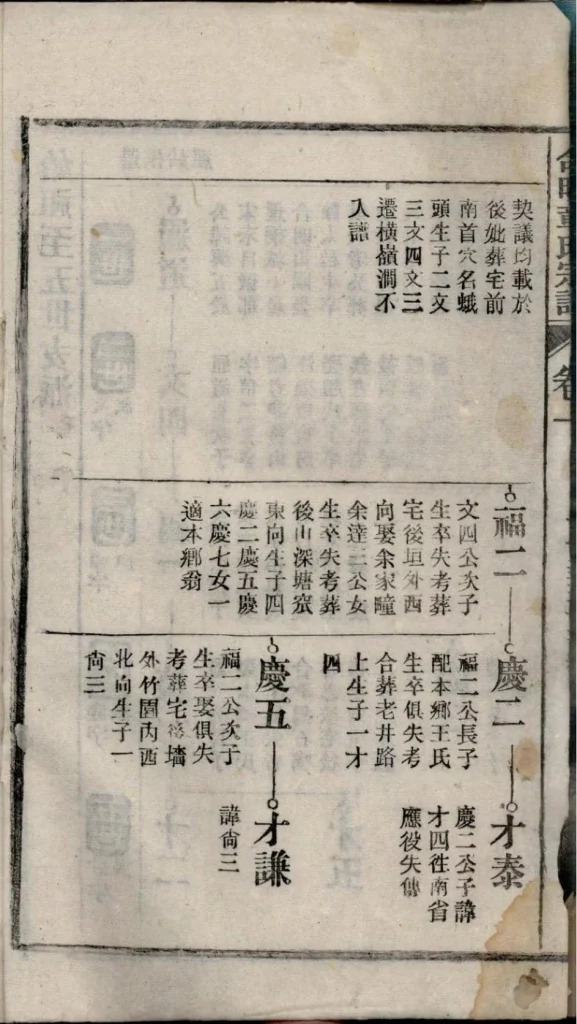 契議均載於
後妣葬宅前
南首穴名蛾
頭生子二文
三文四文三
遷橫嶺澗不
入譜
福二
文四公次子
生卒失考葬
宅後垣外西
向娶余家疃
余達三公女
生卒失考葬
後山深塘窊
東向生子四
慶二慶五慶
六慶七女一
適本鄉翁
慶二
福二公長子
配本鄉王氏
生卒俱失考
合葬老井路
上生子一才
四
才泰
慶二公子諱
才四徃南省
應役失傳
慶五
福二公次子
生卒娶俱失
考葬宅後墻
外竹園內西
北向生子一
尙三
才謙
諱尙三
氏宗譜
卷一